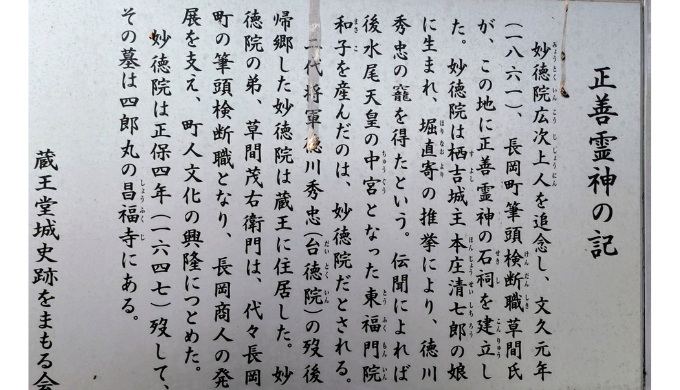 正善霊神の記
妙徳院広次上人を追念し、文久元年
(一八六一)、長岡町筆頭検断職草間氏
が、この地に正善霊神の石祠を建立し
た。妙徳院は栖吉城主本庄清七郎の娘
に生まれ、堀直寄の推挙により、徳川
秀忠の寵を得たという。伝聞によれば
後水尾天皇の中宮となった東福門院
和子を産んだのは、妙徳院だとされる。
二代将軍徳川秀忠(台徳院)の歿後
帰郷した妙徳院は蔵王に住居した。妙
徳院の弟、草間茂右衛門は、代々長岡
町の筆頭検断職となり、長岡商人の発
展を支え、町人文化の興隆につとめた。
妙徳院は正保四年(一六四七)歿して、
その墓は四郎丸の昌福寺にある。
蔵王堂城史跡をまもる会